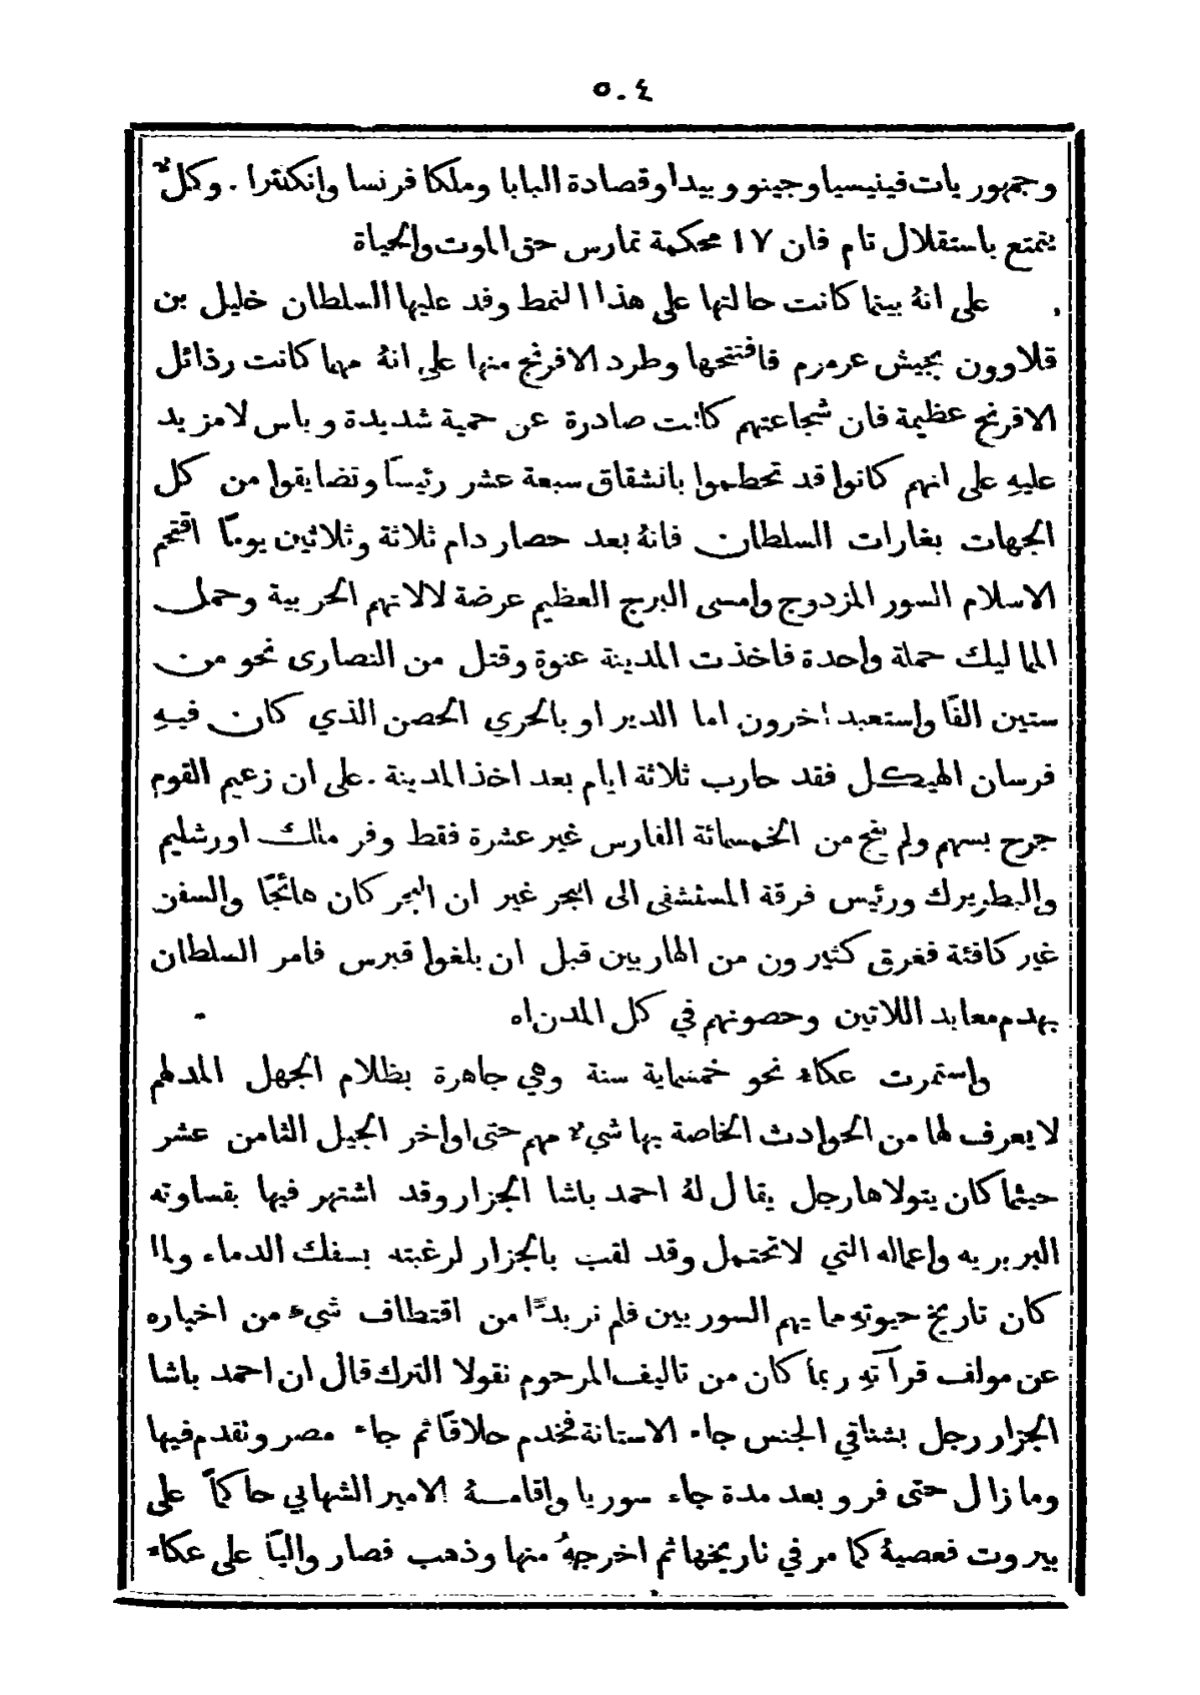 ٥٠٤
وجمهوريات فينيسيا وجينو وبيدا وقصادة البابا وملكا فرنسا وانكلترا . وكلٌ
يتمتع باستقلال تام فان ١٧ محكمة تمارس حق الموت والحياة
على انهُ بينما كانت حالتها على هذا النمط وفد عليها السلطان خليل بن
قلاوون بجيش عرمرم فافتتحها وطرد الافرنج منها على انهُ مهما كانت رذائل
الافرنج عظيمة فان شجاعتهم كانت صادرة عن حمية شديدة وباس لا مزيد
عليهِ على انهم كانوا قد تحطموا بانشقاق سبعة عشر رئيسًا وتضايقوا من كل
الجهات بغارات السلطان فانهُ بعد حصار دام ثلاثة وثلاثين يومًا اقتحم
الاسلام السور المزدوج وامسى البرج العظيم عرضة لالاتهم الحربية وحمل
المماليك حملة واحدة فاخذت المدينة عنوة وقتل من النصارى نحو من
ستين الفًا واستعبد اخرون اما الدير او بالحري الحصن الذي كان فيهِ
فرسان الهيكل فقد حارب ثلاثة ايام بعد اخذ المدينة . على ان زعيم القوم
جرح بسهم ولم ينج من الخمسمائة الفارس غير عشرة فقط وفر مالك اورشليم
والبطريرك ورئيس فرقة المستشفى الى البحر غير ان البحر كان هائجًا والسفن
غير كافئة فغرق كثيرون من الهاربين قبل ان بلغوا قبرس فامر السلطان
بهدم معابد اللاتين وحصونهم في كل المدن اه
واستمرت عكاء نحو خمسماية سنة وهي جاهرة بظلام الجهل المدلهم
لا يعرف لها من الحوادث الخاصة بها شيء مهم حتى اواخر الجيل الثامن عشر
حيثما كان يتولاها رجل يقال لهُ احمد باشا الجزار وقد اشتهر فيها بقساوته
البربريه واعماله التي لا تحتمل وقد لقب بالجزار لرغبته بسفك الدماء ولما
كان تاريخ حيوتهِ مما يهم السوريين فلم نر بدًّا من اقتطاف شيء من اخباره
عن مولف قرآتهِ ربما كان من تاليف المرحوم نقولا الترك قال ان احمد باشا
الجزار رجل بشناقي الجنس جاء الاستانة فخدم حلاقًا ثم جاء مصر وتقدم فيها
وما زال حتى فر وبعد مدة جاء سوريا واقامـهُ الامير الشهابي حاكمًا على
بيروت فعصيهُ كما مر في تاريخها ثم اخرجهُ منها وذهب فصار واليًا على عكاء